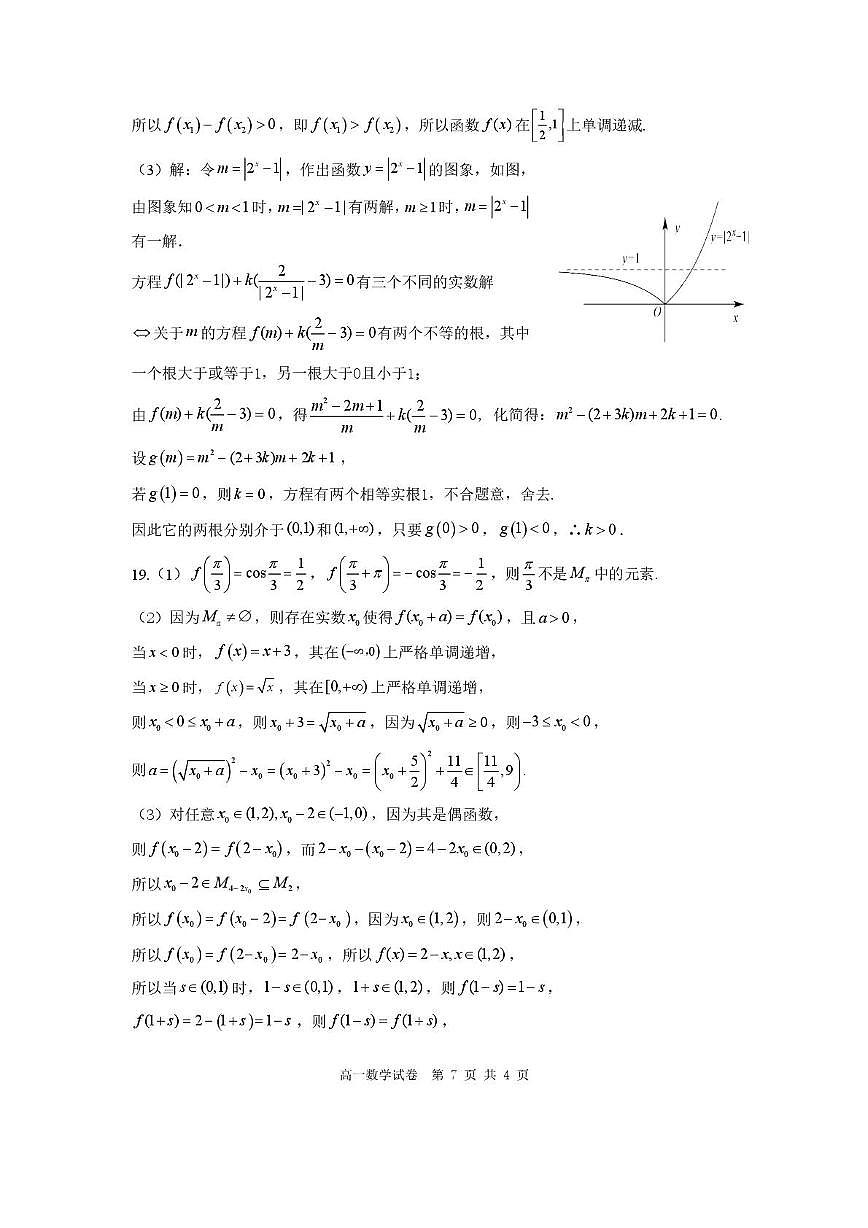 所以 f(x₁)-f(x₂)>0，即 f(x₁)>f(x₂)，所以函数 f(x) 在[1/2,1]上单调递减.
（3）解：令 m=|2ˣ-1|，作出函数 y=|2ˣ-1| 的图象，如图，
由图象知 0<m<1 时，m=|2ˣ-1| 有两解，m≥1 时，m=|2ˣ-1|
有一解．
方程 f(|2ˣ-1|)+k(2/|2ˣ-1|-3)=0 有三个不同的实数解
⇔关于 m 的方程 f(m)+k(2/m-3)=0 有两个不等的根，其中
一个根大于或等于1，另一根大于0且小于1；
y
y=|2ˣ-1|
y=1
O
x
由 f(m)+k(2/m-3)=0，得 (m²-2m+1)/m+k(2/m-3)=0，化简得：m²-(2+3k)m+2k+1=0.
设 g(m)=m²-(2+3k)m+2k+1，
若 g(1)=0，则 k=0，方程有两个相等实根1，不合题意，舍去.
因此它的两根分别介于 (0,1) 和 (1,+∞)，只要 g(0)>0，g(1)<0，∴k>0．
19.（1）f(π/3)=cos π/3=1/2，f(π/3+π)=-cos π/3=-1/2，则 π/3 不是 M_π 中的元素.
（2）因为 M_a≠∅，则存在实数 x₀ 使得 f(x₀+a)=f(x₀)，且 a>0，
当 x<0 时，f(x)=x+3，其在 (-∞,0) 上严格单调递增，
当 x≥0 时，f(x)=√x，其在 [0,+∞) 上严格单调递增，
则 x₀<0≤x₀+a，则 x₀+3=√(x₀+a)，因为 √(x₀+a)≥0，则 -3≤x₀<0，
则 a=(√(x₀+a))²-x₀=(x₀+3)²-x₀=(x₀+5/2)²+11/4∈[11/4,9).
（3）对任意 x₀∈(1,2),x₀-2∈(-1,0)，因为其是偶函数，
则 f(x₀-2)=f(2-x₀)，而 2-x₀-(x₀-2)=4-2x₀∈(0,2)，
所以 x₀-2∈M_{4-2x₀}⊆M₂，
所以 f(x₀)=f(x₀-2)=f(2-x₀)，因为 x₀∈(1,2)，则 2-x₀∈(0,1)，
所以 f(x₀)=f(2-x₀)=2-x₀，所以 f(x)=2-x,x∈(1,2)，
所以当 s∈(0,1) 时，1-s∈(0,1)，1+s∈(1,2)，则 f(1-s)=1-s，
f(1+s)=2-(1+s)=1-s，则 f(1-s)=f(1+s)，
高一数学试卷 第 7 页 共 4 页